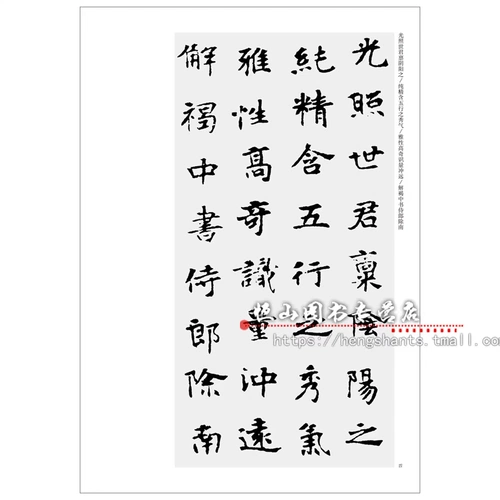 光照世君禀阴阳之/纯精含五行之秀气/雅性高奇识量冲远/解褐中书侍郎除南
光照世君稟陰陽之
純精含五行之秀氣
雅性高奇識量沖遠
解褐中書侍郎除南
山图书专卖店
https://hengshants.tmall.com